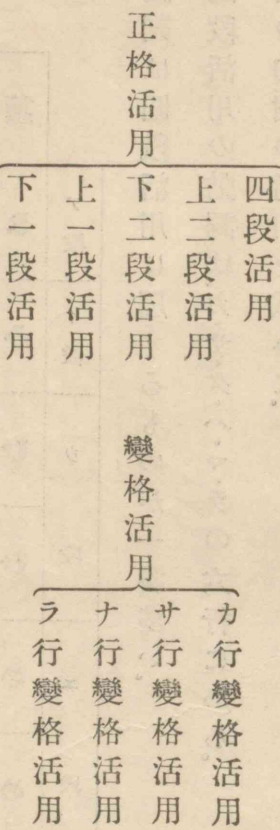 正格活用
四段活用
上二段活用
下二段活用
上一段活用
下一段活用
變格活用
カ行變格活用
サ行變格活用
ナ行變格活用
ラ行變格活用